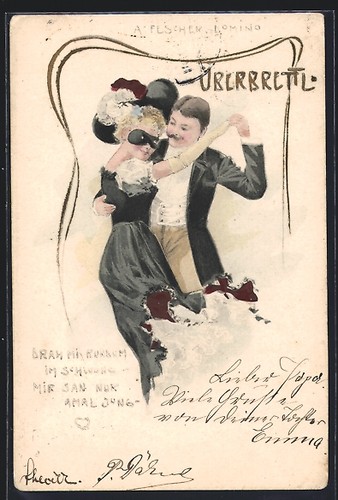 A FESCHER DOMINO
ÜBERBRETTL.
DRAH MI RUNDUM
IM SCHWUNG -
MIR SAN NUR
AMAL JUNG -
Lieber Papa.
Viele Grüße
von deiner Tochter
Emma